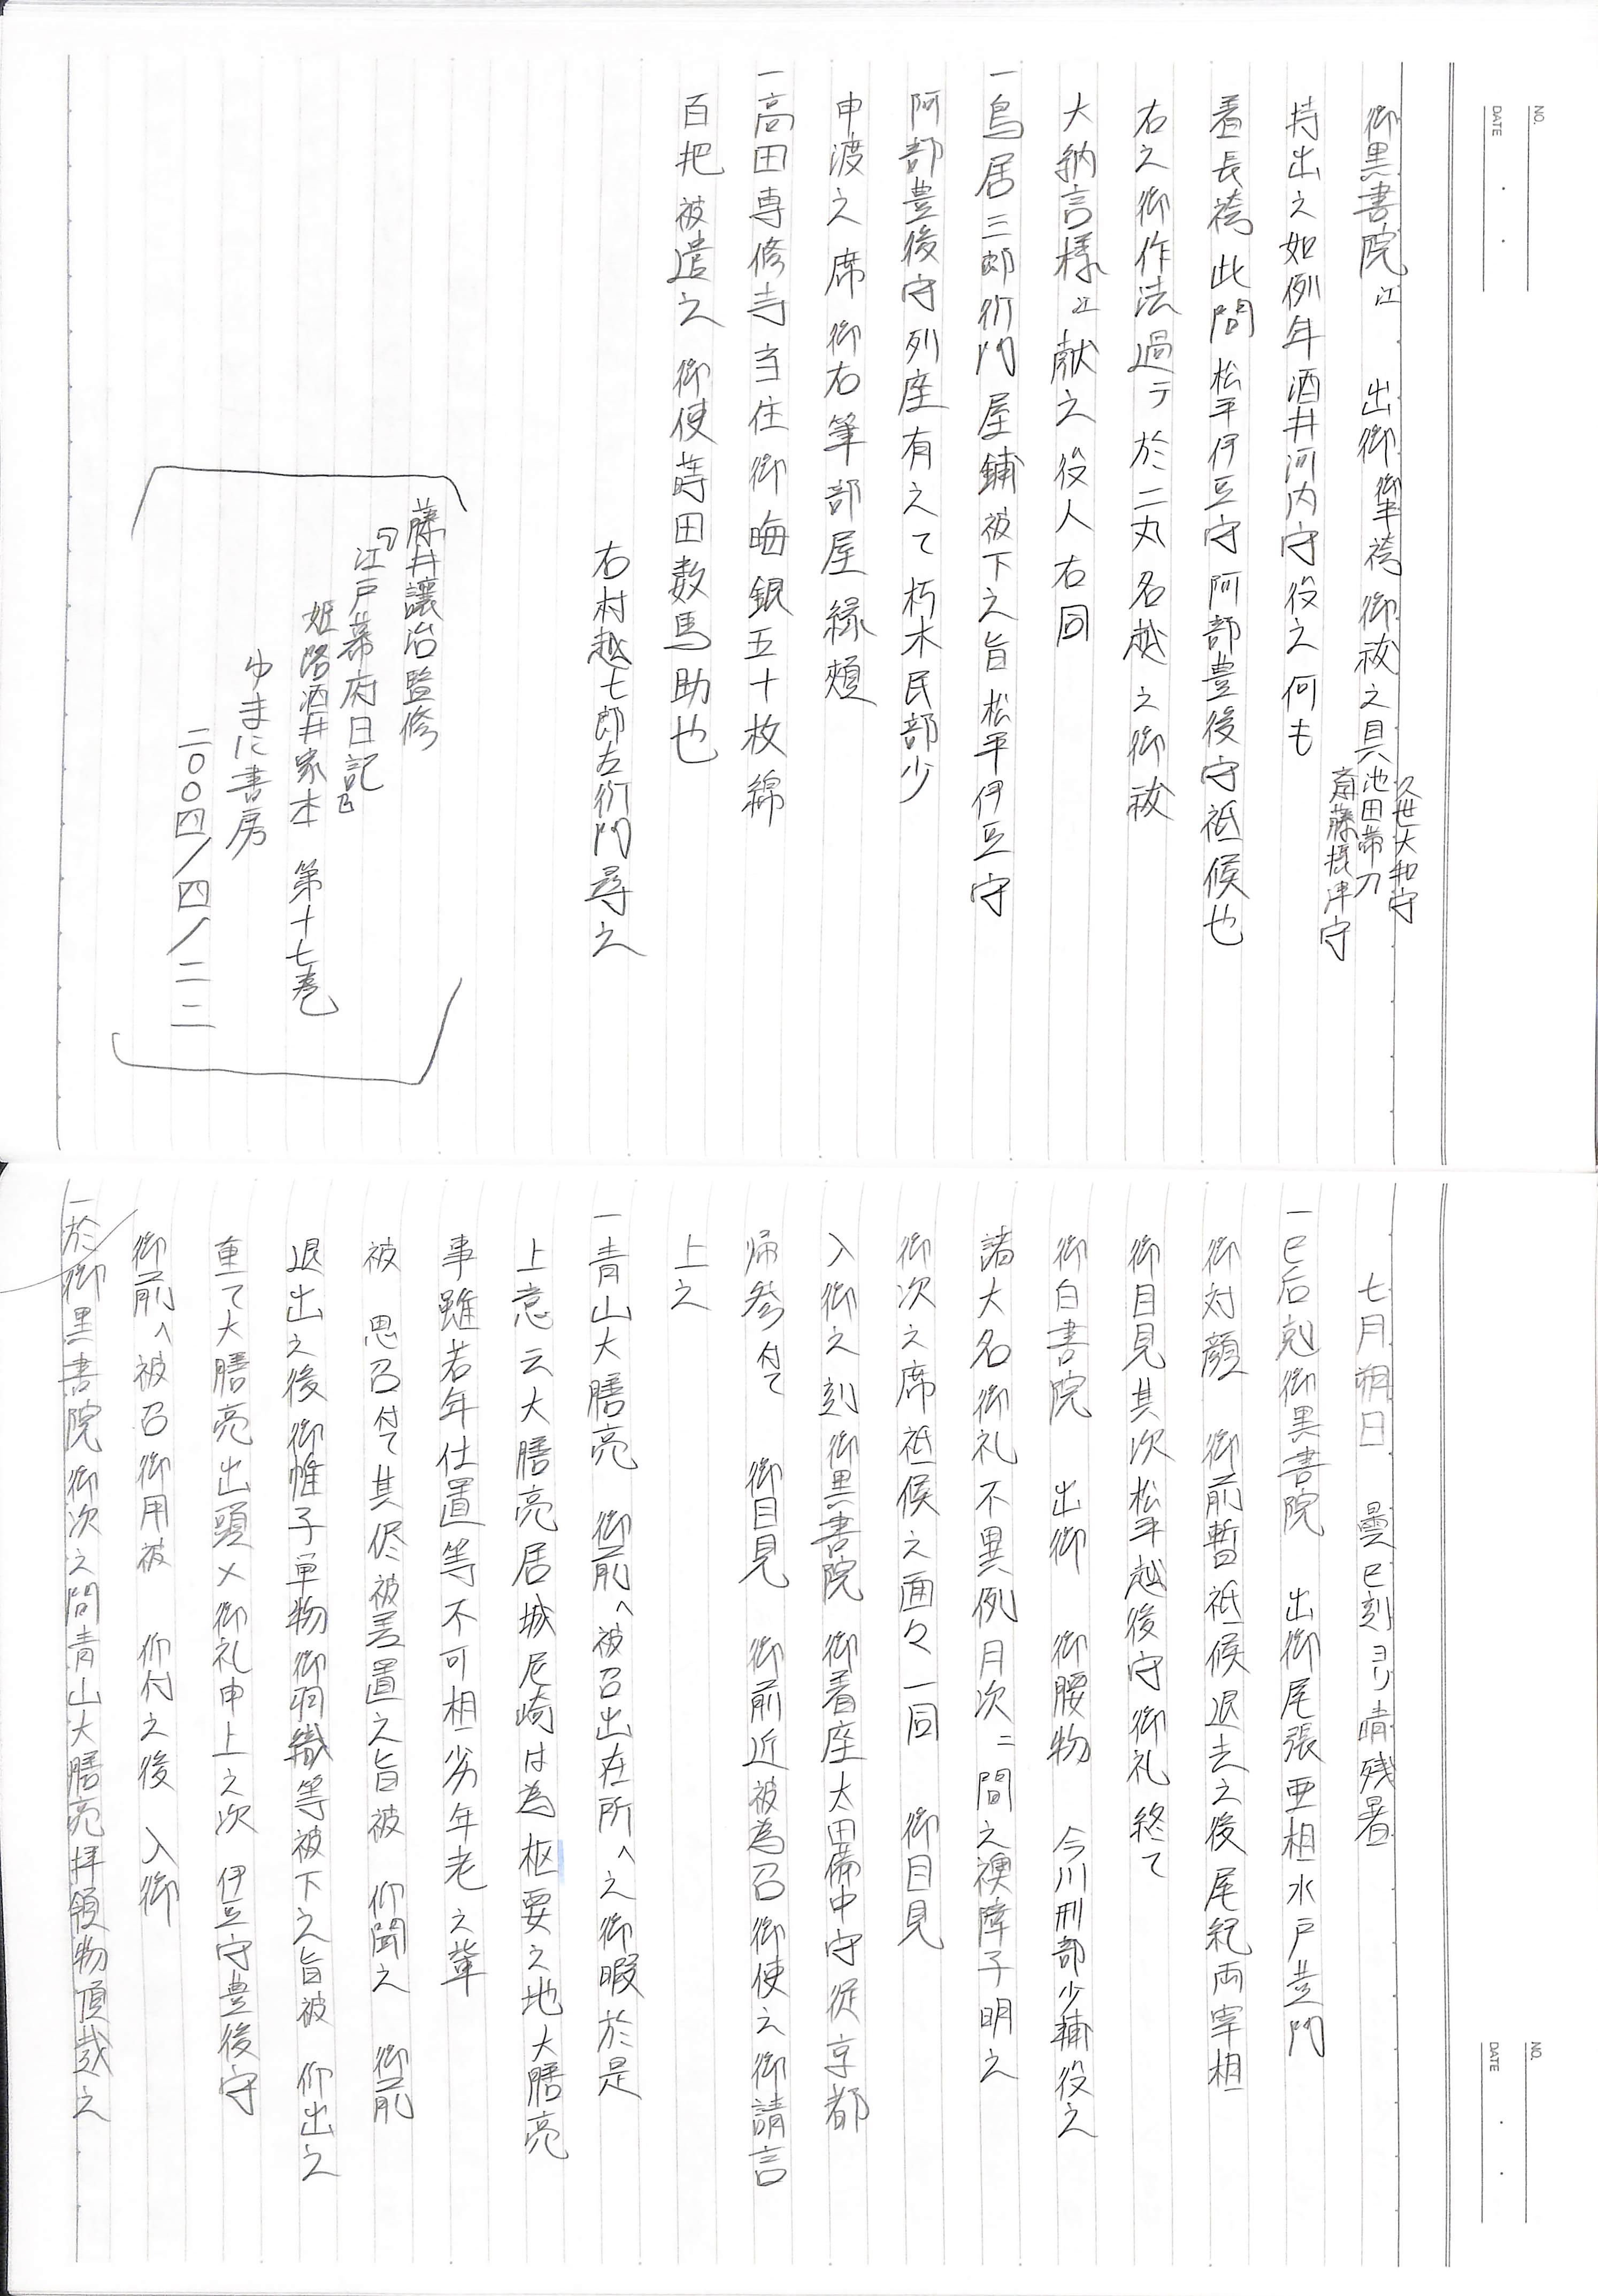 NO.
DATE
御黒書院江 出御御半袴御祓之具久世大和守
池田帯刀
斎藤摂津守
持出之如例年酒井河内守役之何も
着長袴此間松平伊豆守阿部豊後守祗候也
右之御作法過テ於二丸名越之御祓
大納言様江献之役人右同
一鳥居三郎衛門屋鋪被下之旨松平伊豆守
阿部豊後守列座有之て朽木民部少
申渡之席御右筆部屋縁頬
一高田専修寺当住御晦銀五十枚綿
百把被遣之御使蒔田数馬助也
右村越七郎左衛門尋之
藤井讓治監修
『江戸幕府日記』
姫路酒井家本 第十七巻
ゆまに書房
二〇〇四/四/二二
NO.
DATE
七月朔日 曇巳刻ヨリ晴残暑
一巳后剋御黒書院 出御尾張亜相水戸黄門
御対顔 御前暫祗候退去之後尾紀両宰相
御目見其次松平越後守御礼終て
御白書院 出御 御腰物 今川刑部少輔役之
諸大名御礼不異例月次ニ間之襖障子明之
御次之席祗候之面々一同 御目見
入御之刻御黒書院御着座太田備中守従京都
帰参付て 御目見 御前近被為召御使之御請言
上之
一青山大膳亮 御前へ被召出在所へ之御暇於是
上意云大膳亮居城尼崎は為枢要之地大膳亮
事雖若年仕置等不可相劣年老之輩
被 思召付て其侭被差置之旨被 仰聞之 御前
退出之後御帷子単物御羽織等被下之旨被 仰出之
重て大膳亮出頭メ御礼申上之次 伊豆守豊後守
御前へ被召御用被 仰付之後 入御
一於御黒書院御次之間青山大膳亮拝領物頂戴之